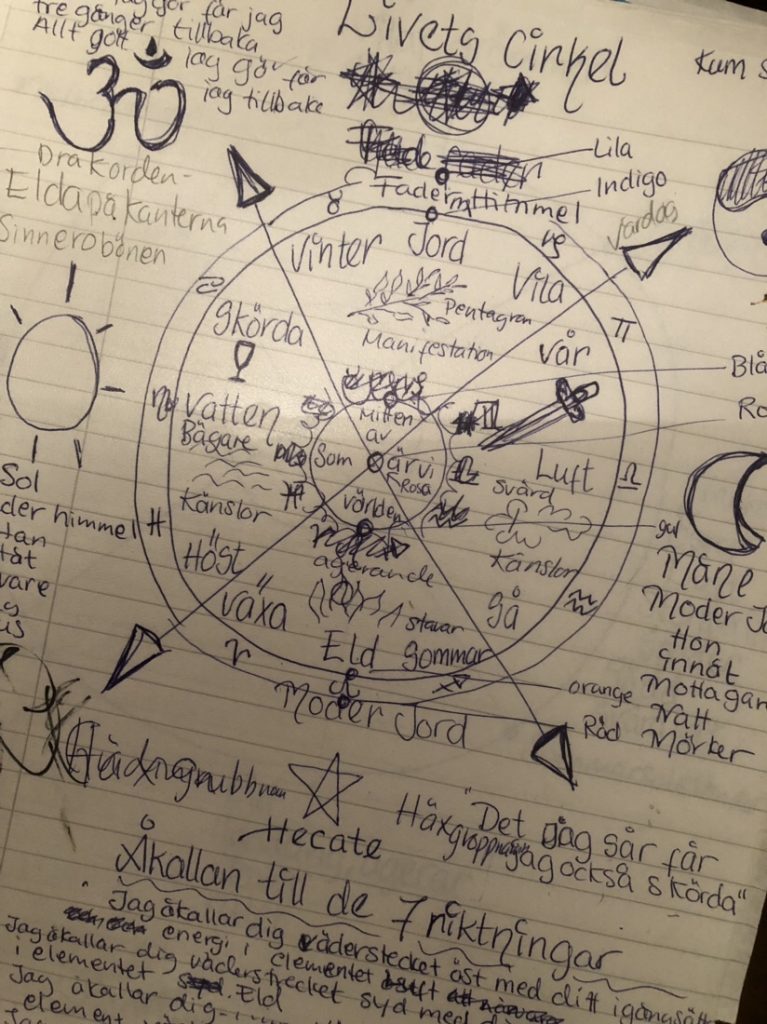 får jag
tre gånger tillbaka
Allt gott jag gör får
jag tillbake
Livets Cirkel
Kum
Lila
Indigo
Fader Himmel
Drakorden-
Eldapåkanterna
Sinnerobönen
Vardag
Vinter Jord
Vila
Pentagram
Manifestation
Skörda
Vår
Blå
Vatten
Bägare
Känslor
Mitten
av
Som är vi
Rosa
världen
Luft
Svärd
Känslor
gul
Sol
der himmel
Höst
agerande
växa
stavar
gå
Eld Sommar
Måne
Moder Jo
Hon
innåt
Mottagan
Natt
Mörker
orange
Röd
Moder Jord
Hecate
"Det jag sår får
jag också skörda"
Åkallan till de 7 riktningar
Jag åkallar dig väderstecket öst med ditt
energi i elementet
Jag åkallar dig väderstrecket syd med
i elementet Eld
Jag åkallar dig
element